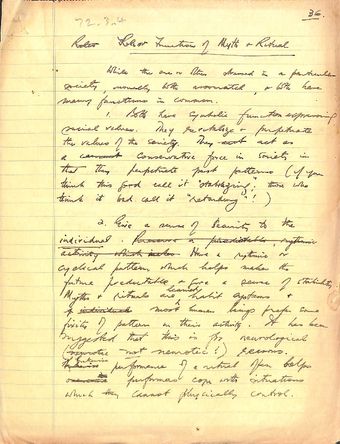 72.3.4
36.
Functions of Myth & Ritual
While the one or other stressed in a particular
society, usually both associated, & both have
many functions in common.
1. Both have symbolic function expressing
social values. They & perpetuate
the values of the society. They act as
a conservative force in society in
that they perpetuate past patterns (if you
think this good call it "stabilizing"; those who
think it bad call it "retarding"!)
2. Give a sense of security to the
individual. Possess a predictable, rythmic
activity which makes Have a rytmic or
cyclical pattern which helps make the
future predictable & give a sense of stability
Myths & rituals are learned habit systems &
if individual most human beings prefer some
fixity of pattern in their activity. It has been
suggested that this is for neurological
(neurotic not neurotic!) reasons.
performance of a ritual often helps
performers cope with situations
which they cannot physically control.